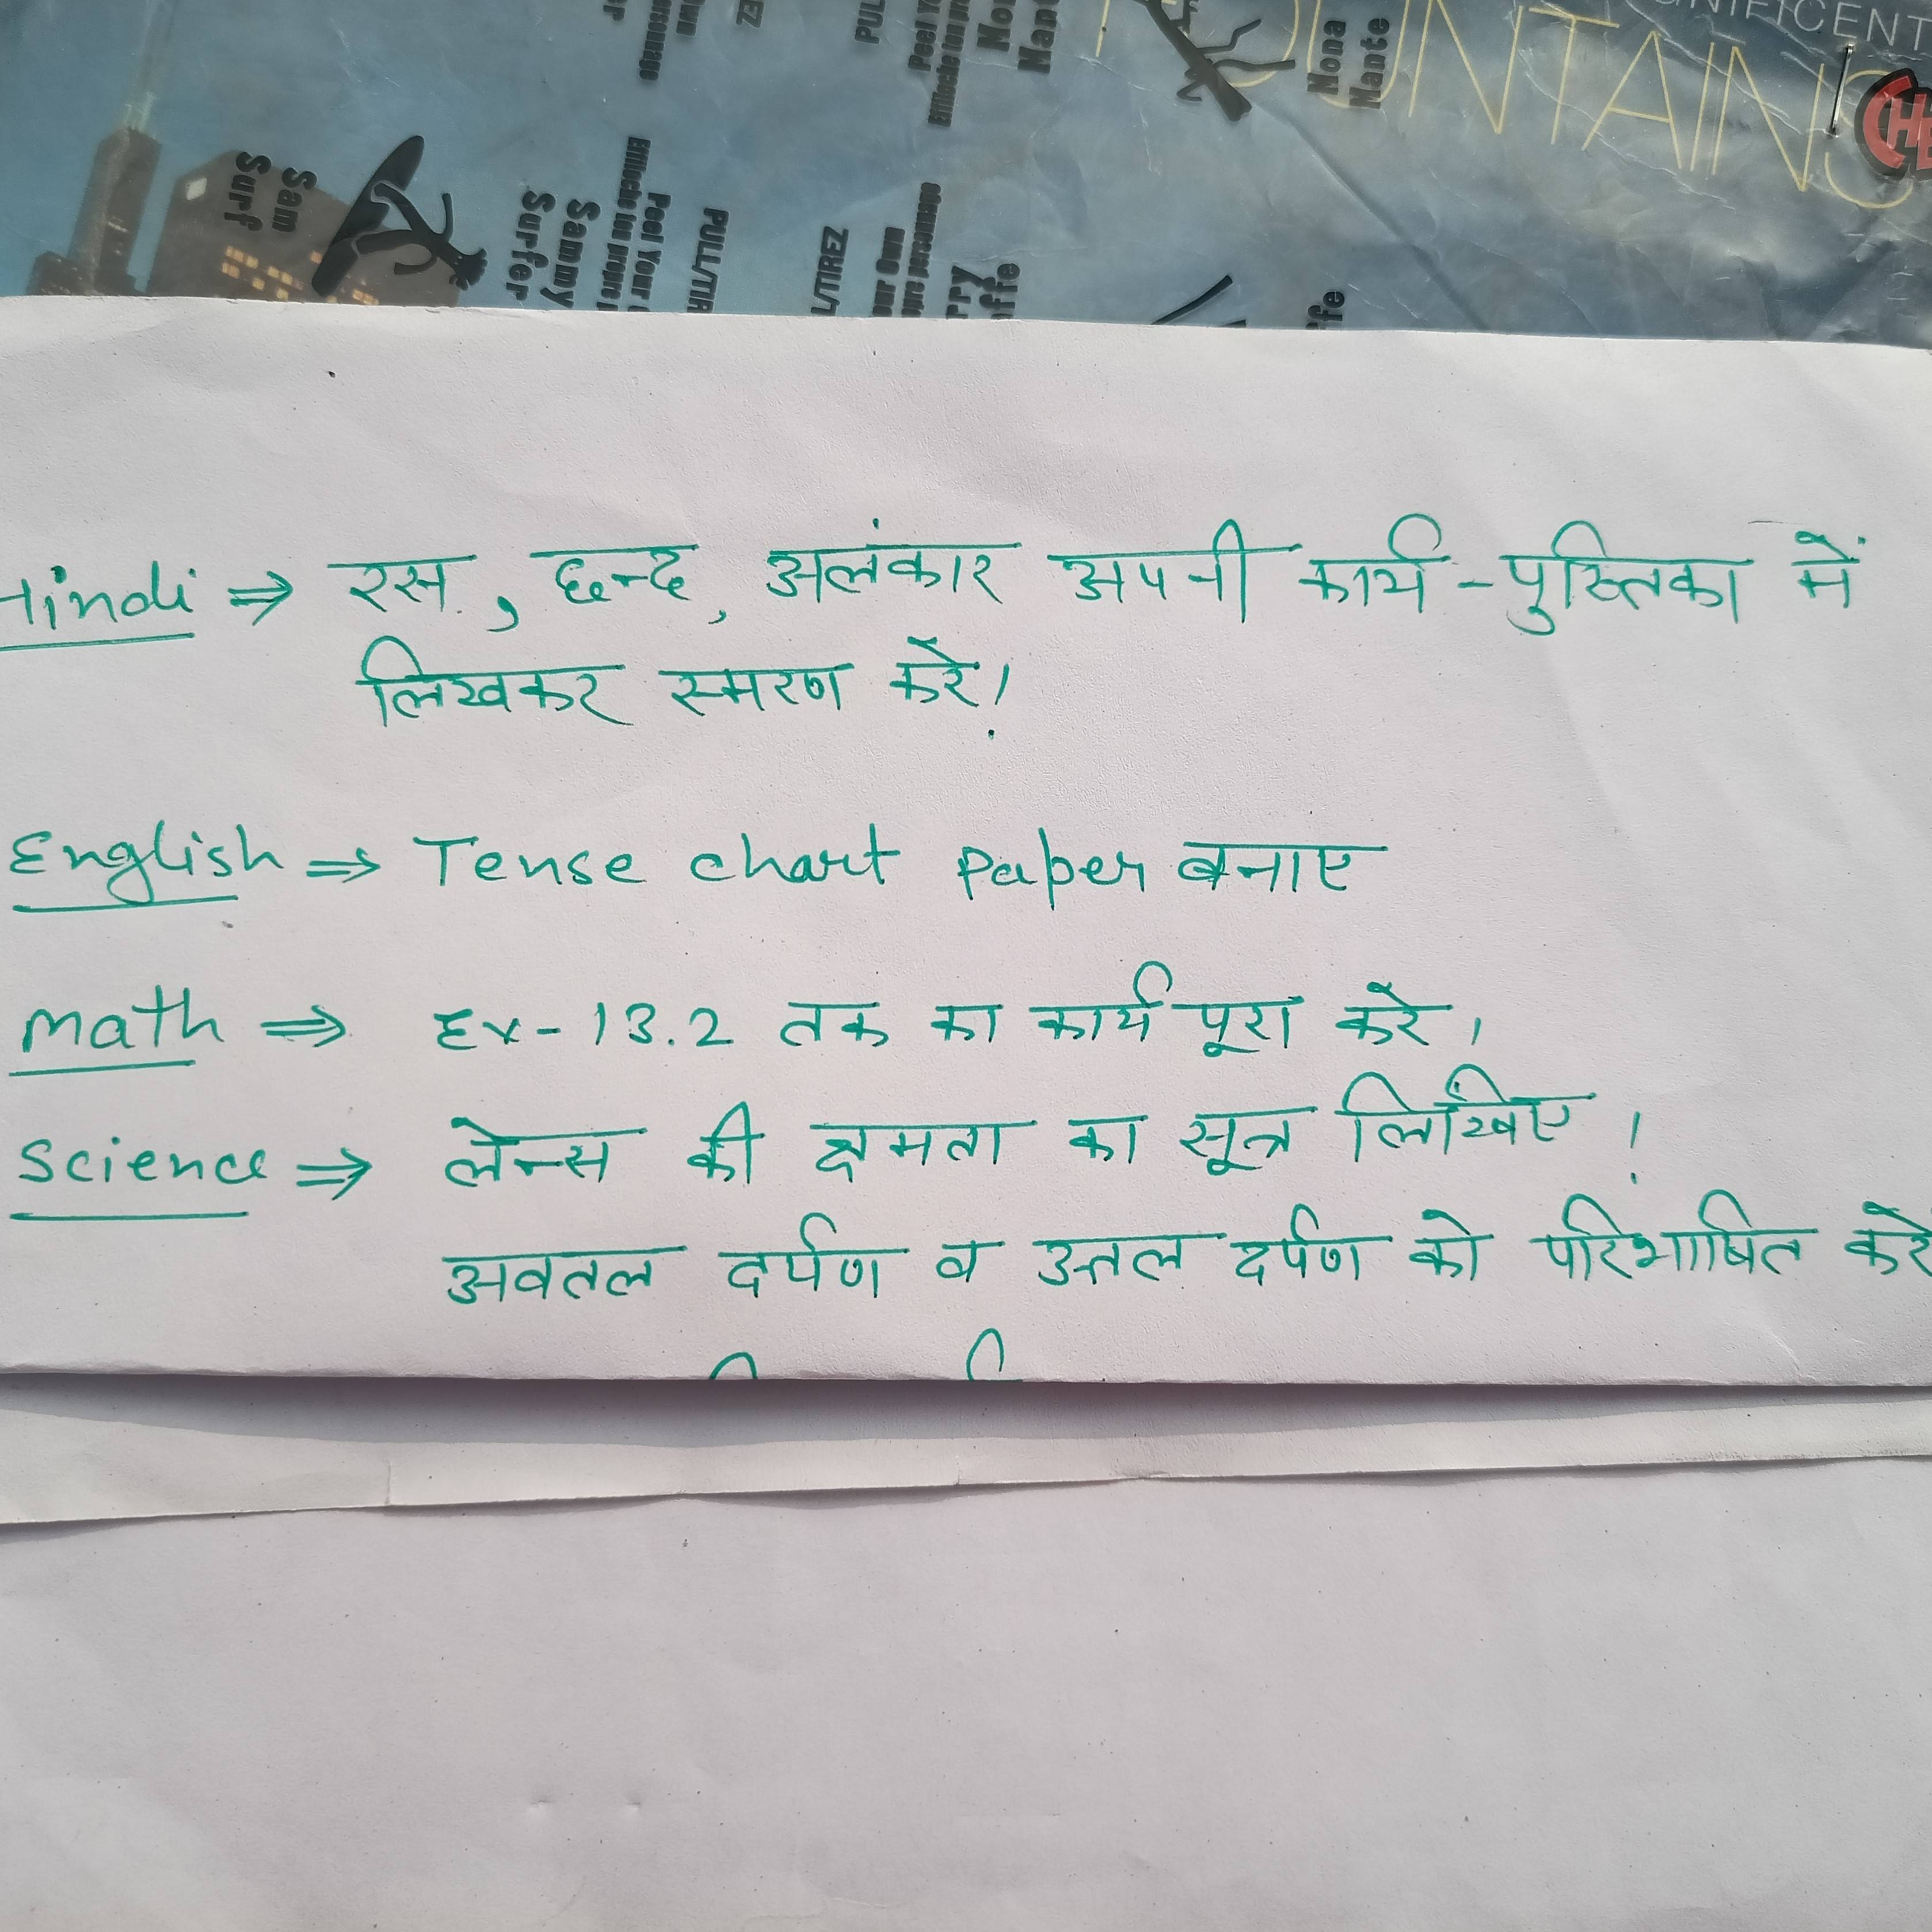 NIFICENT
OUNTAINS
CHE
Mona
Mante
Sam
Surf
Sammy
Surfer
PULL/TIR
L/TIREZ
Hindi ⇒ रस, छन्द, अलंकार अपनी कार्य-पुस्तिका में
लिखकर स्मरण करे!
English ⇒ Tense chart Paper बनाए
Math ⇒ Ex-13.2 तक का कार्य पूरा करे।
Science ⇒ लेन्स की क्षमता का सूत्र लिखिए!
अवतल दर्पण व उत्तल दर्पण को परिभाषित करे